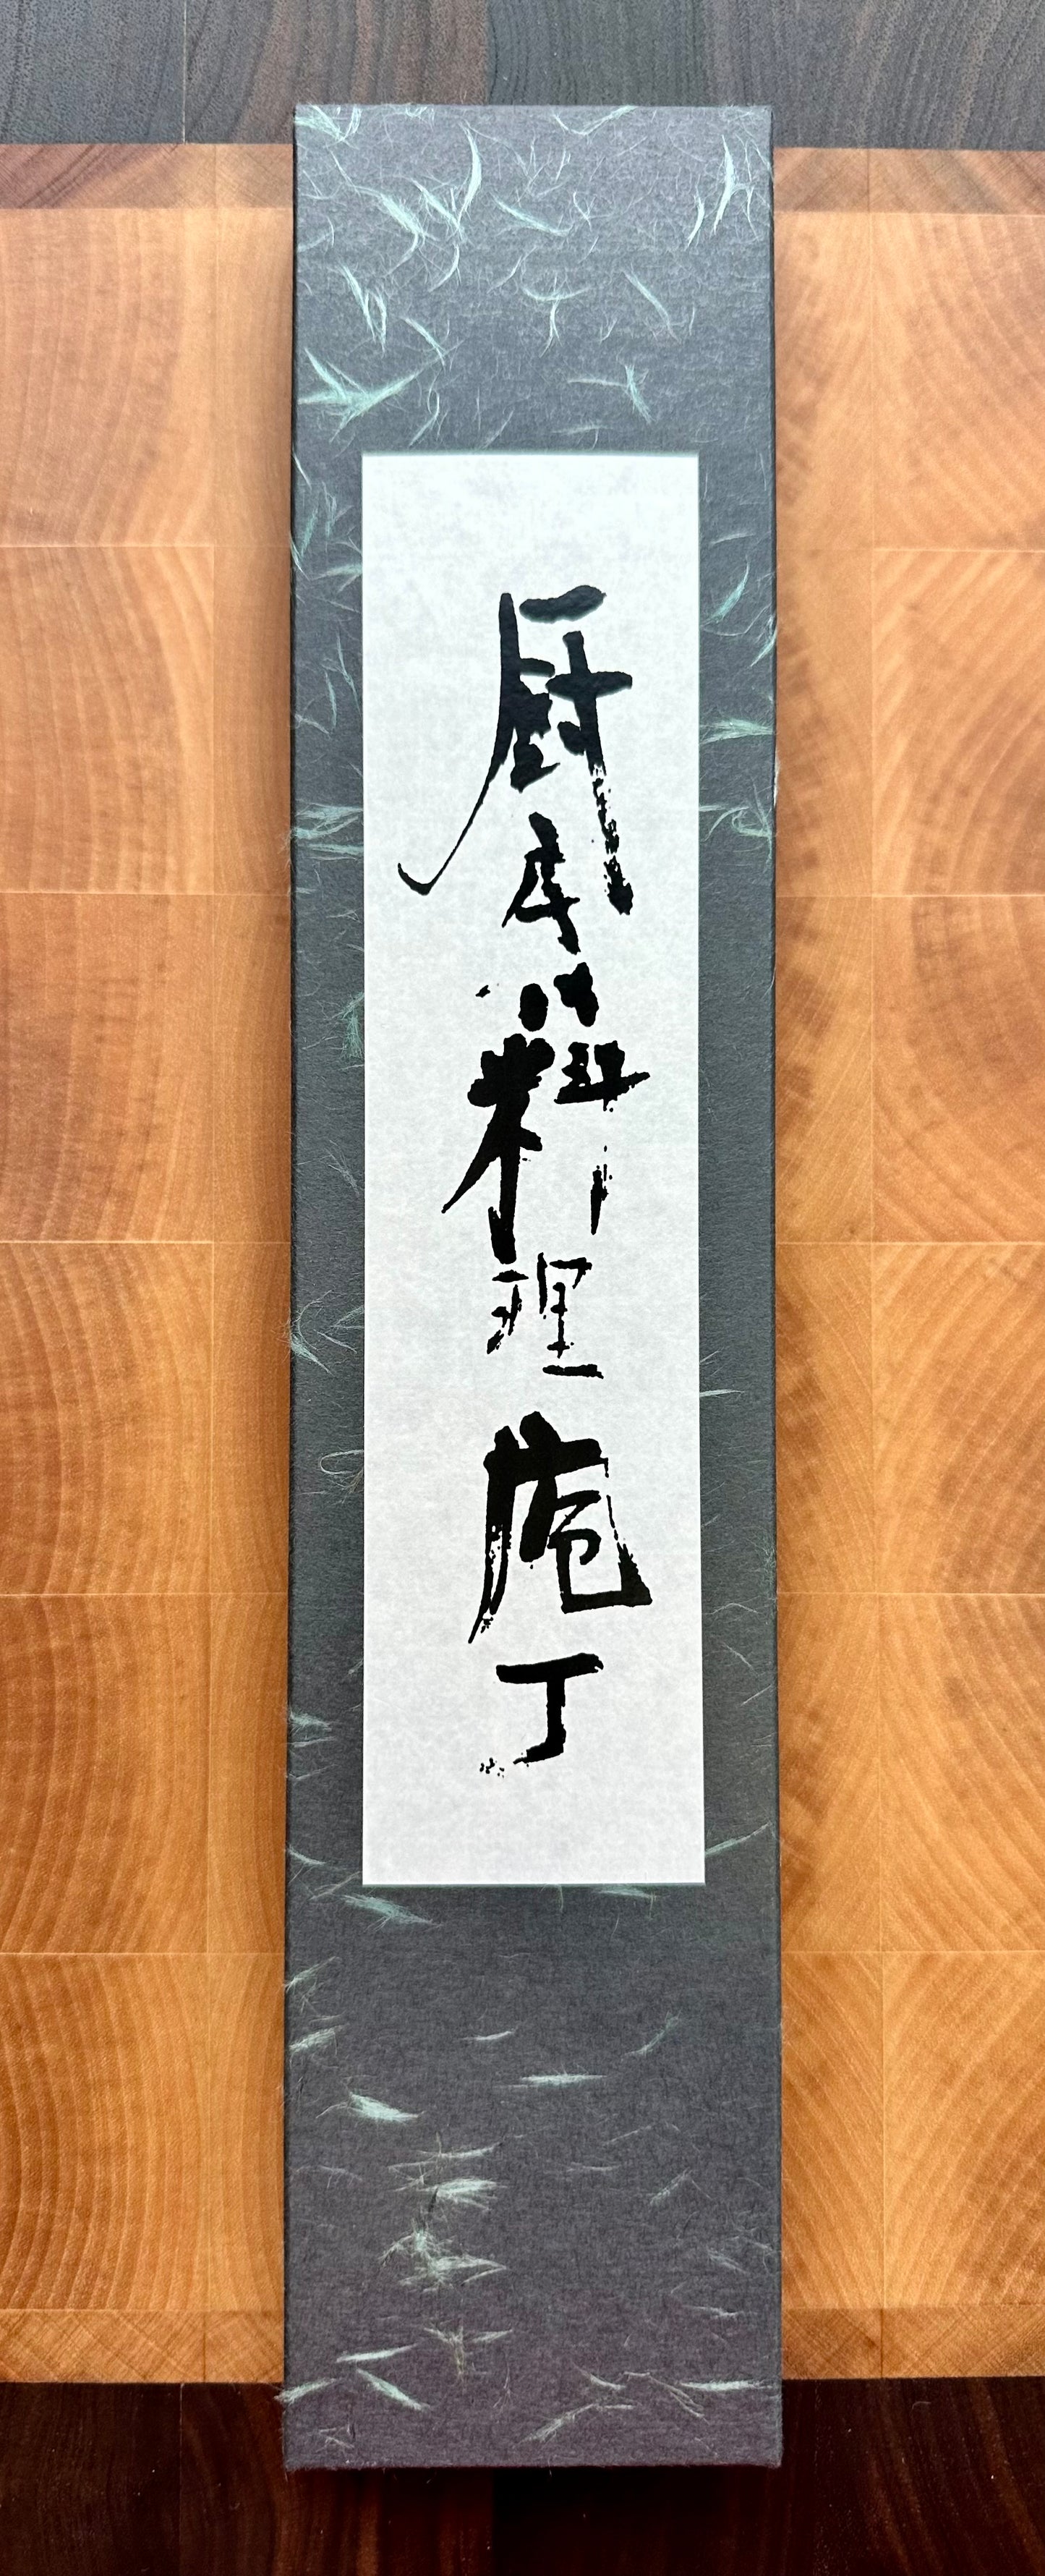 厨房料理庖丁